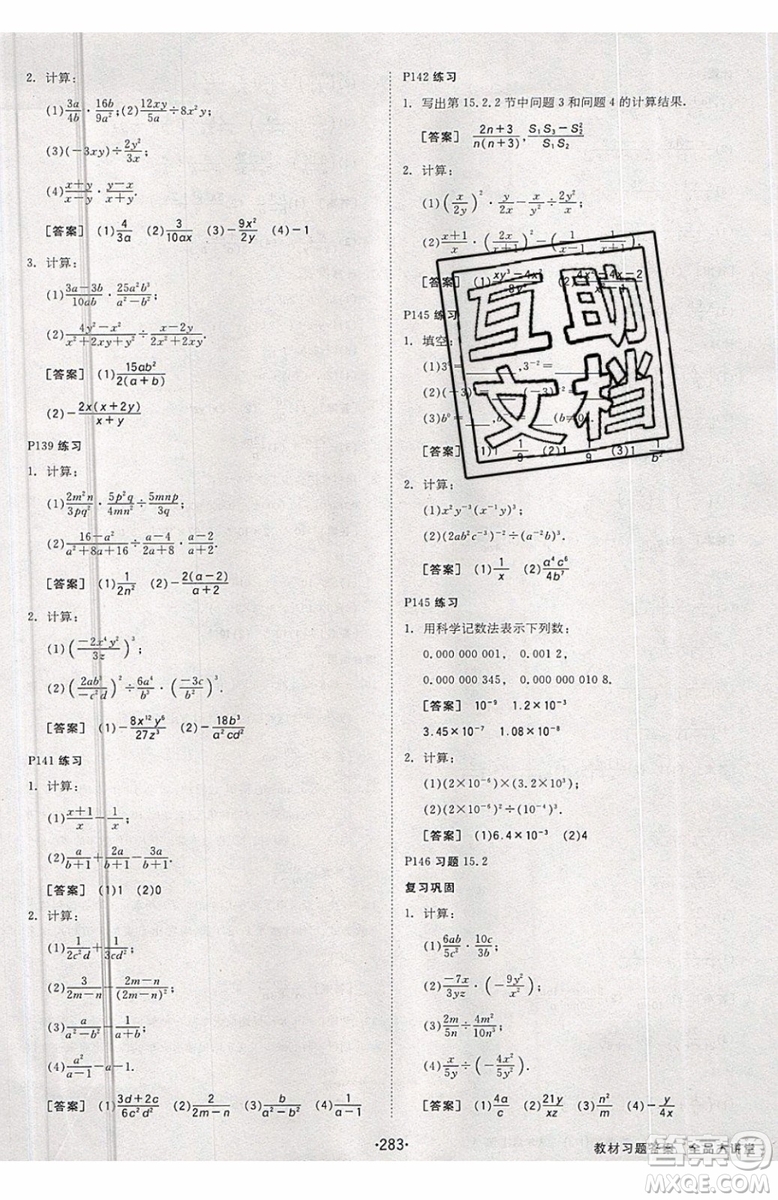 2. 计算:
(1)3a/4b · 16b/9a²;(2)12xy/5a÷8x²y;
(3)(-3xy)÷2y²/3x;
(4)(x+y)/(x-y) · (y-x)/(x+y).
[答案] (1)4/3a (2)3/10ax (3)-9x²/2y (4)-1
3. 计算:
(1)(3a-3b)/10ab · 25a²b³/(a²-b²);
(2)(4y²-x²)/(x²+2xy+y²)÷(x-2y)/(2x²+2xy).
[答案] (1)15ab²/2(a+b)
(2)-2x(x+2y)/(x+y)
P139 练习
1. 计算:
(1)2m²n/3pq² · 5p²q/4mn²÷5mnp/3q;
(2)(16-a²)/(a²+8a+16)÷(a-4)/(2a+8) · (a-2)/(a+2).
[答案] (1)1/2n² (2)-2(a-2)/(a+2)
2. 计算:
(1)(-2x⁴y²/3z)³;
(2)(2ab³/-c²d)²÷6a⁴/b³ · (-3c/b²)³.
[答案] (1)-8x¹²y⁶/27z³ (2)-18b³/a²cd²
P141 练习
1. 计算:
(1)(x+1)/x-1/x;
(2)a/(b+1)+2a/(b+1)-3a/(b+1).
[答案] (1)1 (2)0
2. 计算:
(1)1/2c²d+1/3cd²;
(2)3/(2m-n)-(2m-n)/(2m-n)²;
(3)a/(a²-b²)-1/(a+b);
(4)a²/(a-1)-a-1.
[答案] (1)(3d+2c)/6c²d² (2)2/(2m-n) (3)b/(a²-b²) (4)1/(a-1)
P142 练习
1. 写出第 15.2.2 节中问题 3 和问题 4 的计算结果.
[答案] (2n+3)/n(n+3),(S₁S₃-S₂²)/S₁S₂
2. 计算:
(1)(x/2y)² · y/2x-x/y²÷2y²/x;
(2)(x+1)/x · (2x/(x+1))²-
[答案] (1)
P145 练习
1. 填空:
(1)3⁰=___,3⁻²=___
(3)b⁰=___,
[答案] (1)1 1/9 (2)1 1/9 (3)1 1/b²
2. 计算:
(1)x²y⁻³(x⁻¹y)³;
(2)(2ab²c⁻³)⁻²÷(a⁻²b)³.
[答案] (1)1/x (2)a⁴c⁶/4b⁷
P145 练习
1. 用科学记数法表示下列数:
0.000 000 001, 0.001 2,
0.000 000 345, 0.000 000 010 8.
[答案] 10⁻⁹ 1.2×10⁻³
3.45×10⁻⁷ 1.08×10⁻⁸
2. 计算:
(1)(2×10⁻⁶)×(3.2×10³);
(2)(2×10⁻⁶)²÷(10⁻⁴)³.
[答案] (1)6.4×10⁻³ (2)4
P146 习题 15.2
复习巩固
1. 计算:
(1)6ab/5c² · 10c/3b;
(2)-7x/3yz · (-9y²/x²);
(3)2m/5n÷4m²/10n³;
(4)x/5y÷(-4x²/5y²).
[答案] (1)4a/c (2)21y/xz (3)n²/m (4)-y/4x
互助
文档
·283·
教材习题答案 全品大讲堂